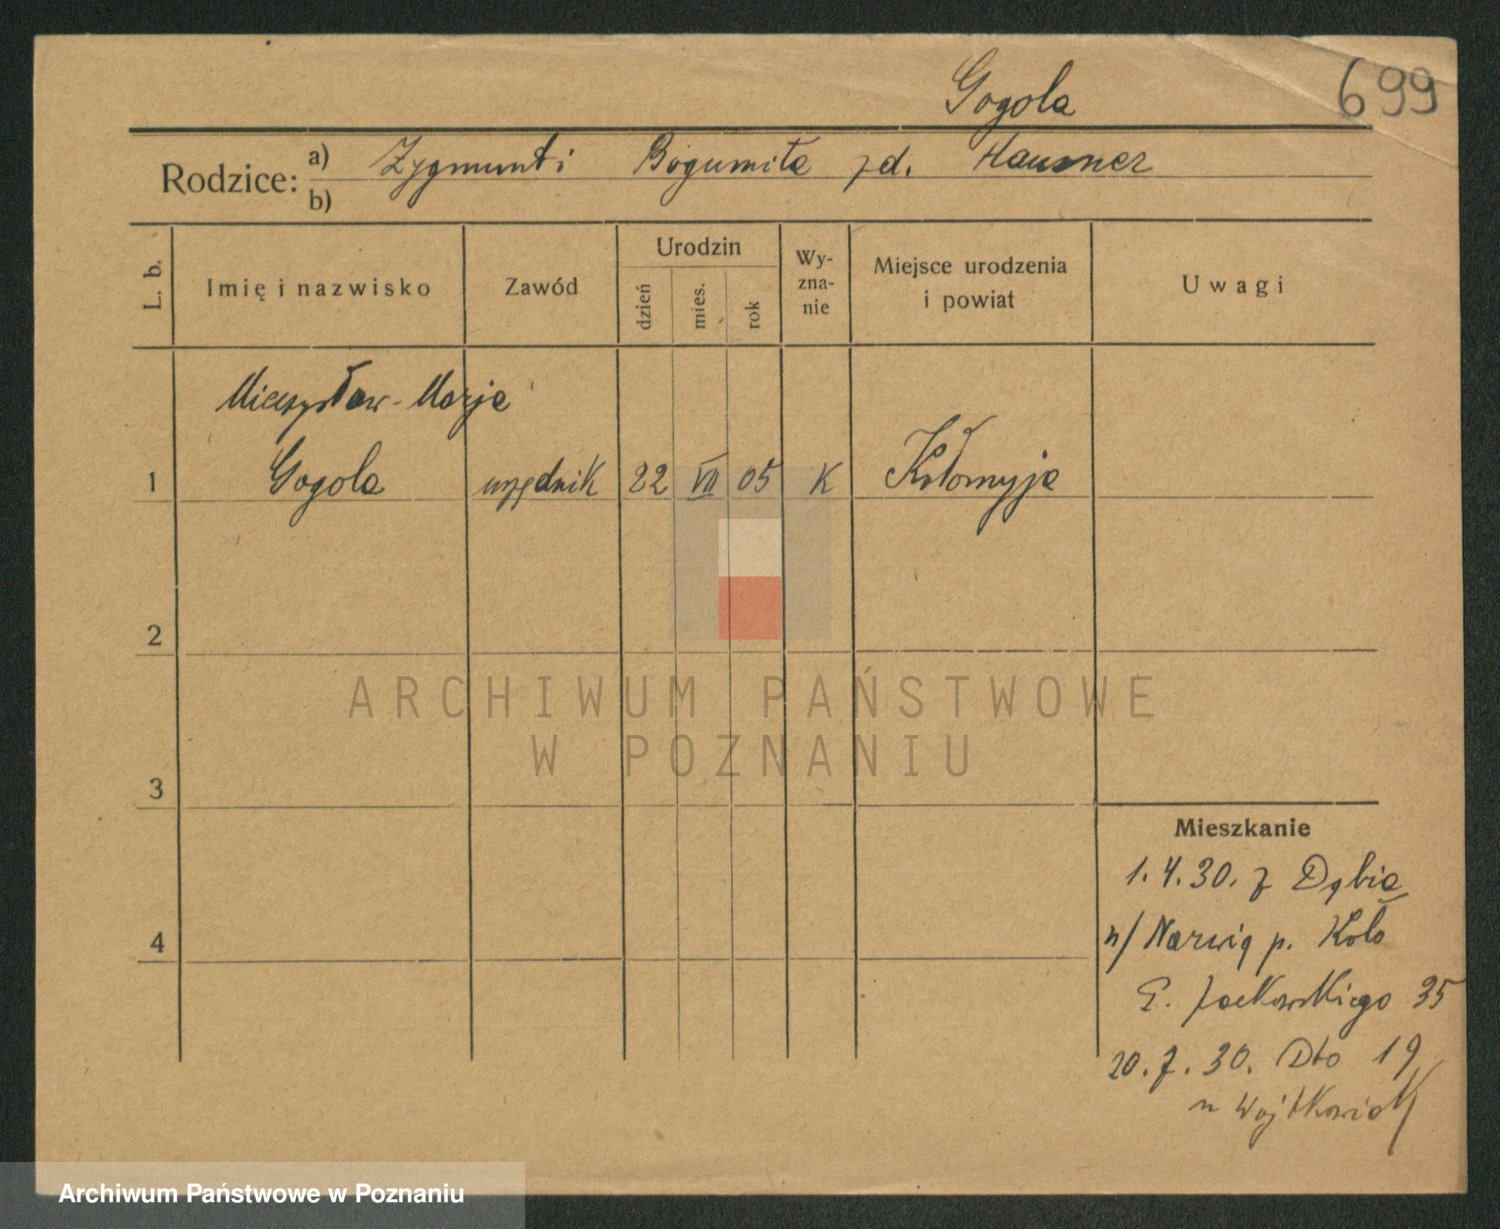 Gogola 699
Rodzice: a) Zygmunt i Bogumiła zd. Hausner
b)
L. b. Imię i nazwisko Zawód Urodzin dzień mies. rok Wy-zna-nie Miejsce urodzenia i powiat Uwagi
Mieczysław-Marja
1 Gogola urzędnik 22 VII 05 K Kołomyja
2
3
4
Mieszkanie
1.4.30. z Dąbia
n/ Narwią p. Koło
Jackowskiego 35
20.7.30. Dto 19
u Wojtkowiak
ARCHIWUM PAŃSTWOWE
W POZNANIU
Archiwum Państwowe w Poznaniu